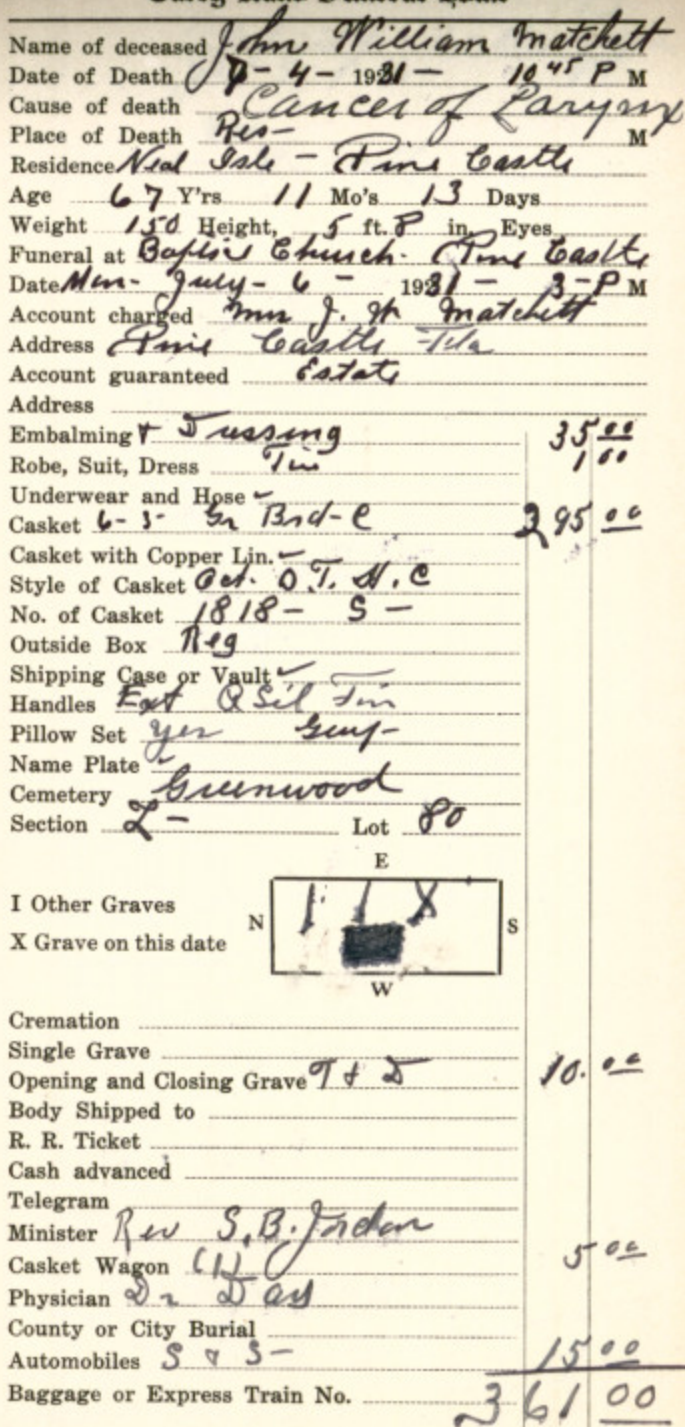 Name of deceased John William Matchett
Date of Death 7-4-1931- 10 45 P M
Cause of death Cancer of Larynx
Place of Death Res- M
Residence Neal Isle - Pine Castle
Age 67 Y'rs 11 Mo's 13 Days
Weight 150 Height, 5 ft. 8 in. Eyes
Funeral at Baptist Church. Pine Castle
Date Mon- July- 6 - 1931 - 3-P M
Account charged Mrs J. W. Matchett
Address Pine Castle Fla
Account guaranteed Estate
Address
Embalming & Dressing 35 00
Robe, Suit, Dress 1 00
Underwear and Hose ✓
Casket 6-3- Gr Brd-C 295 00
Casket with Copper Lin. ✓
Style of Casket Oct. O.T. H.C
No. of Casket 1818- S-
Outside Box Reg
Shipping Case or Vault ✓
Handles Ext Sil Fin
Pillow Set yes
Name Plate
Cemetery Greenwood
Section Z- Lot 80
E
I Other Graves
N I I X S
X Grave on this date
W
Cremation
Single Grave
Opening and Closing Grave T & D 10. 00
Body Shipped to
R. R. Ticket
Cash advanced
Telegram
Minister Rev S. B. Jordan
Casket Wagon (1) 5 00
Physician Dr Day
County or City Burial
Automobiles S & S- 15 00
Baggage or Express Train No. 361 00